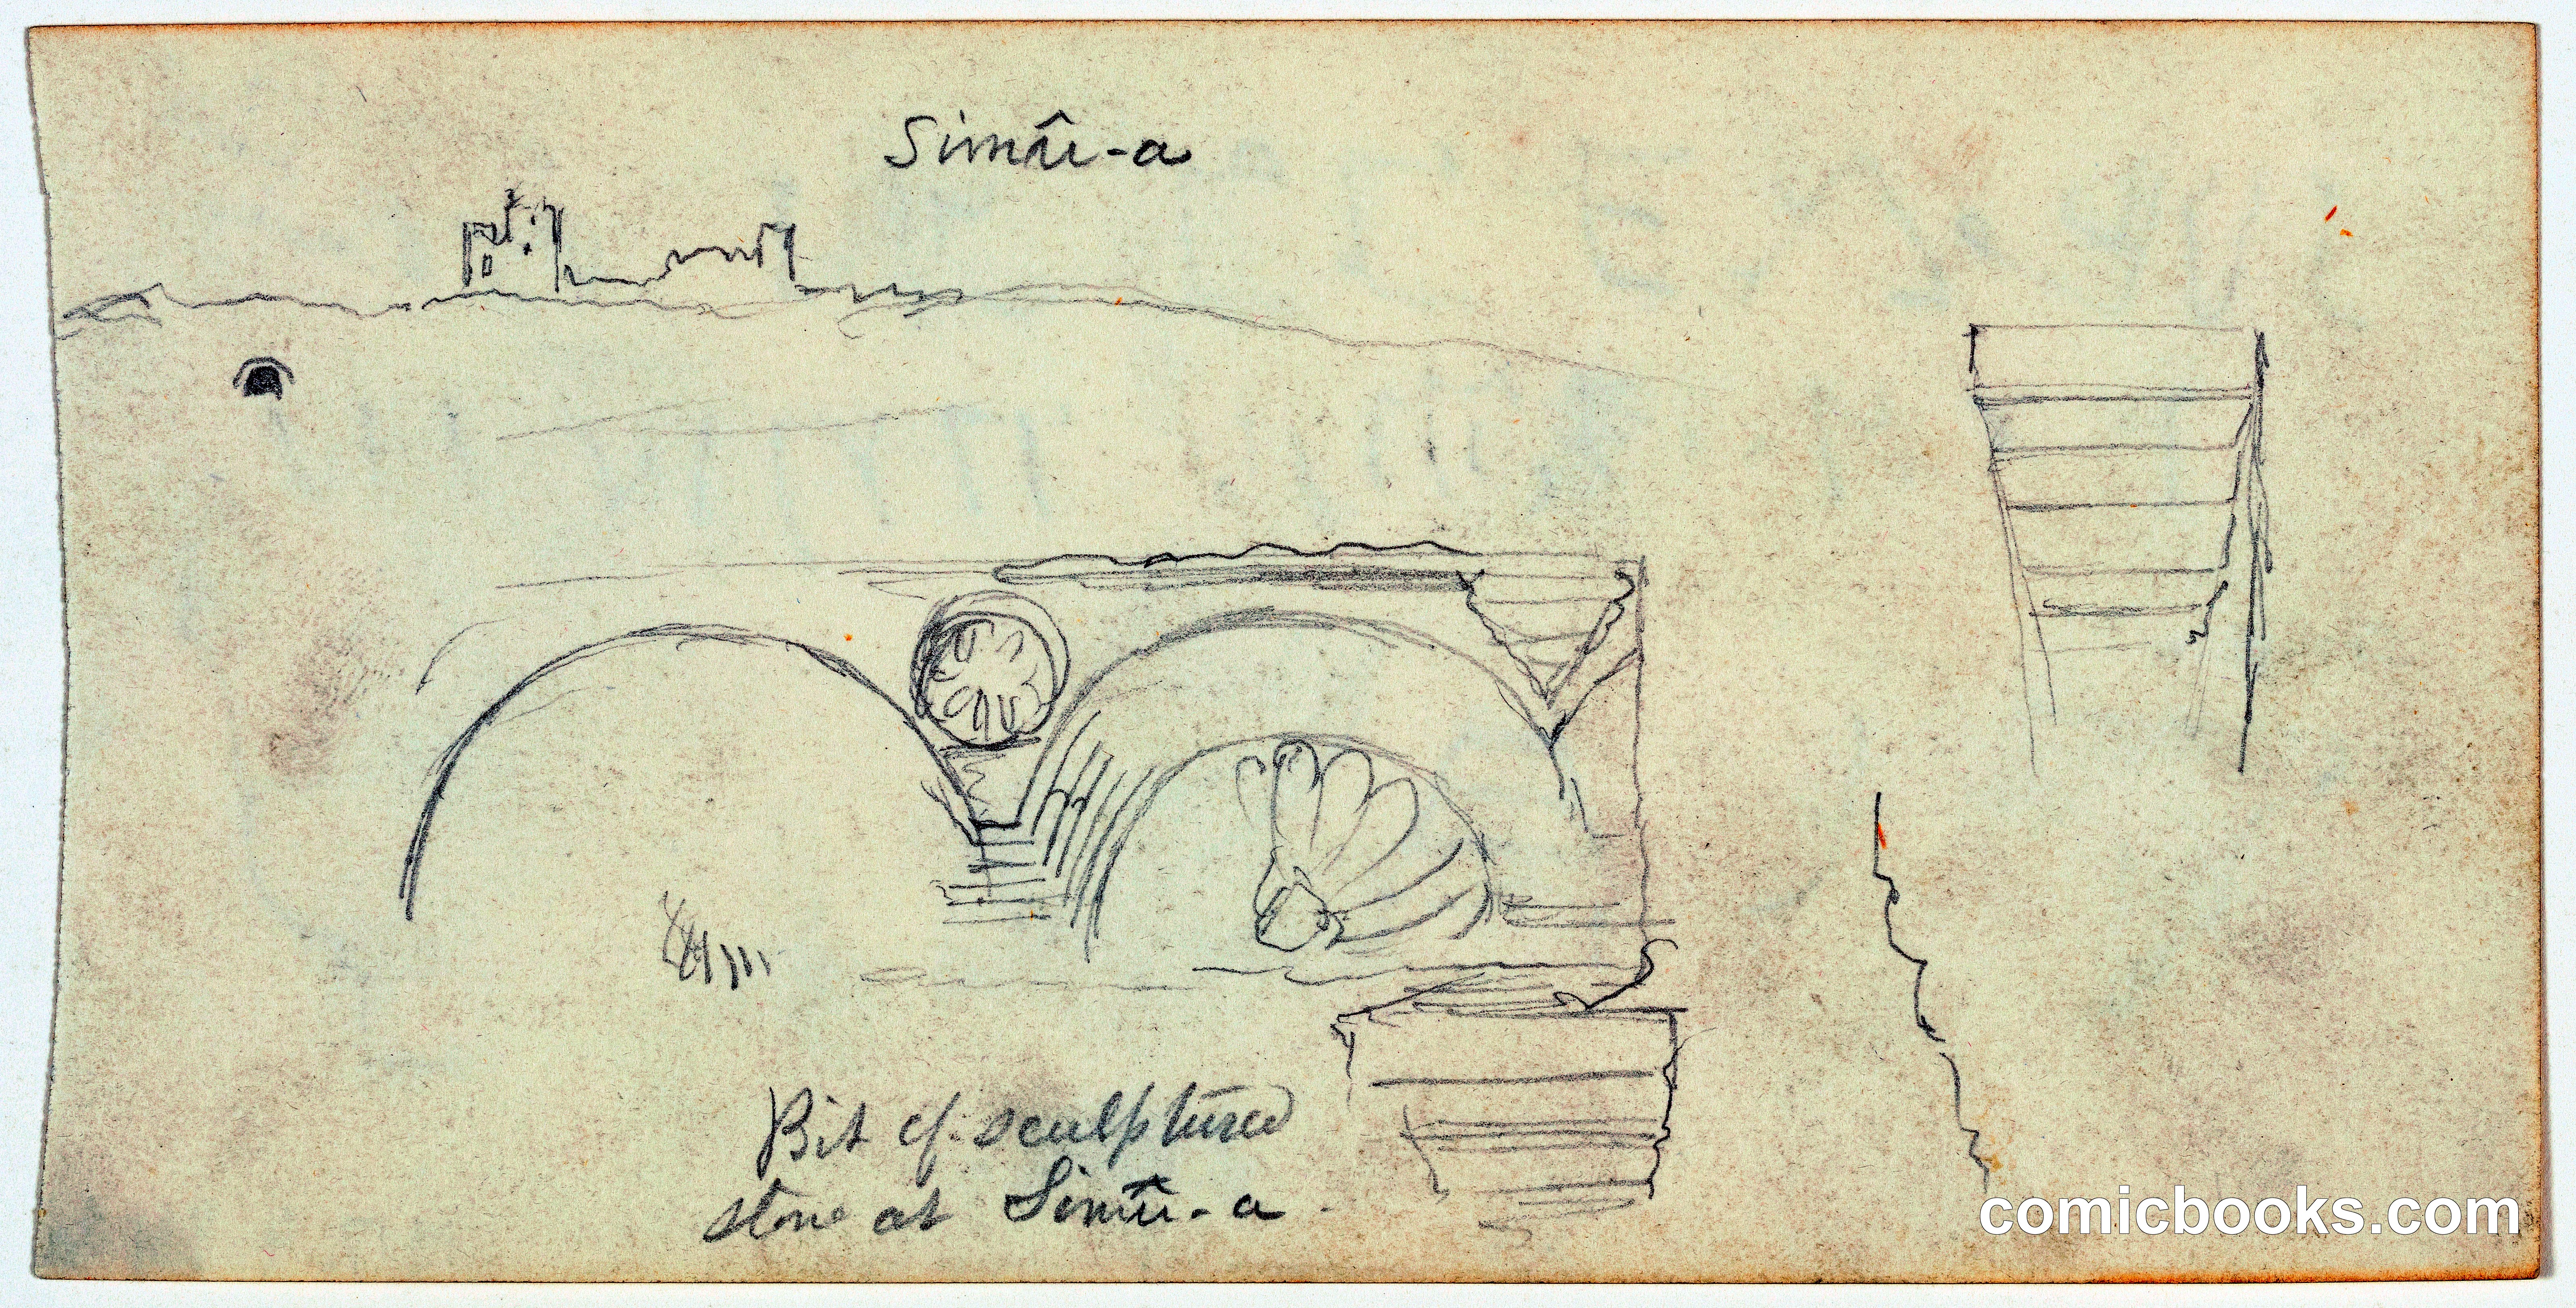 Simû-a
Bit of sculptured
stone at Simû-a.
comicbooks.com